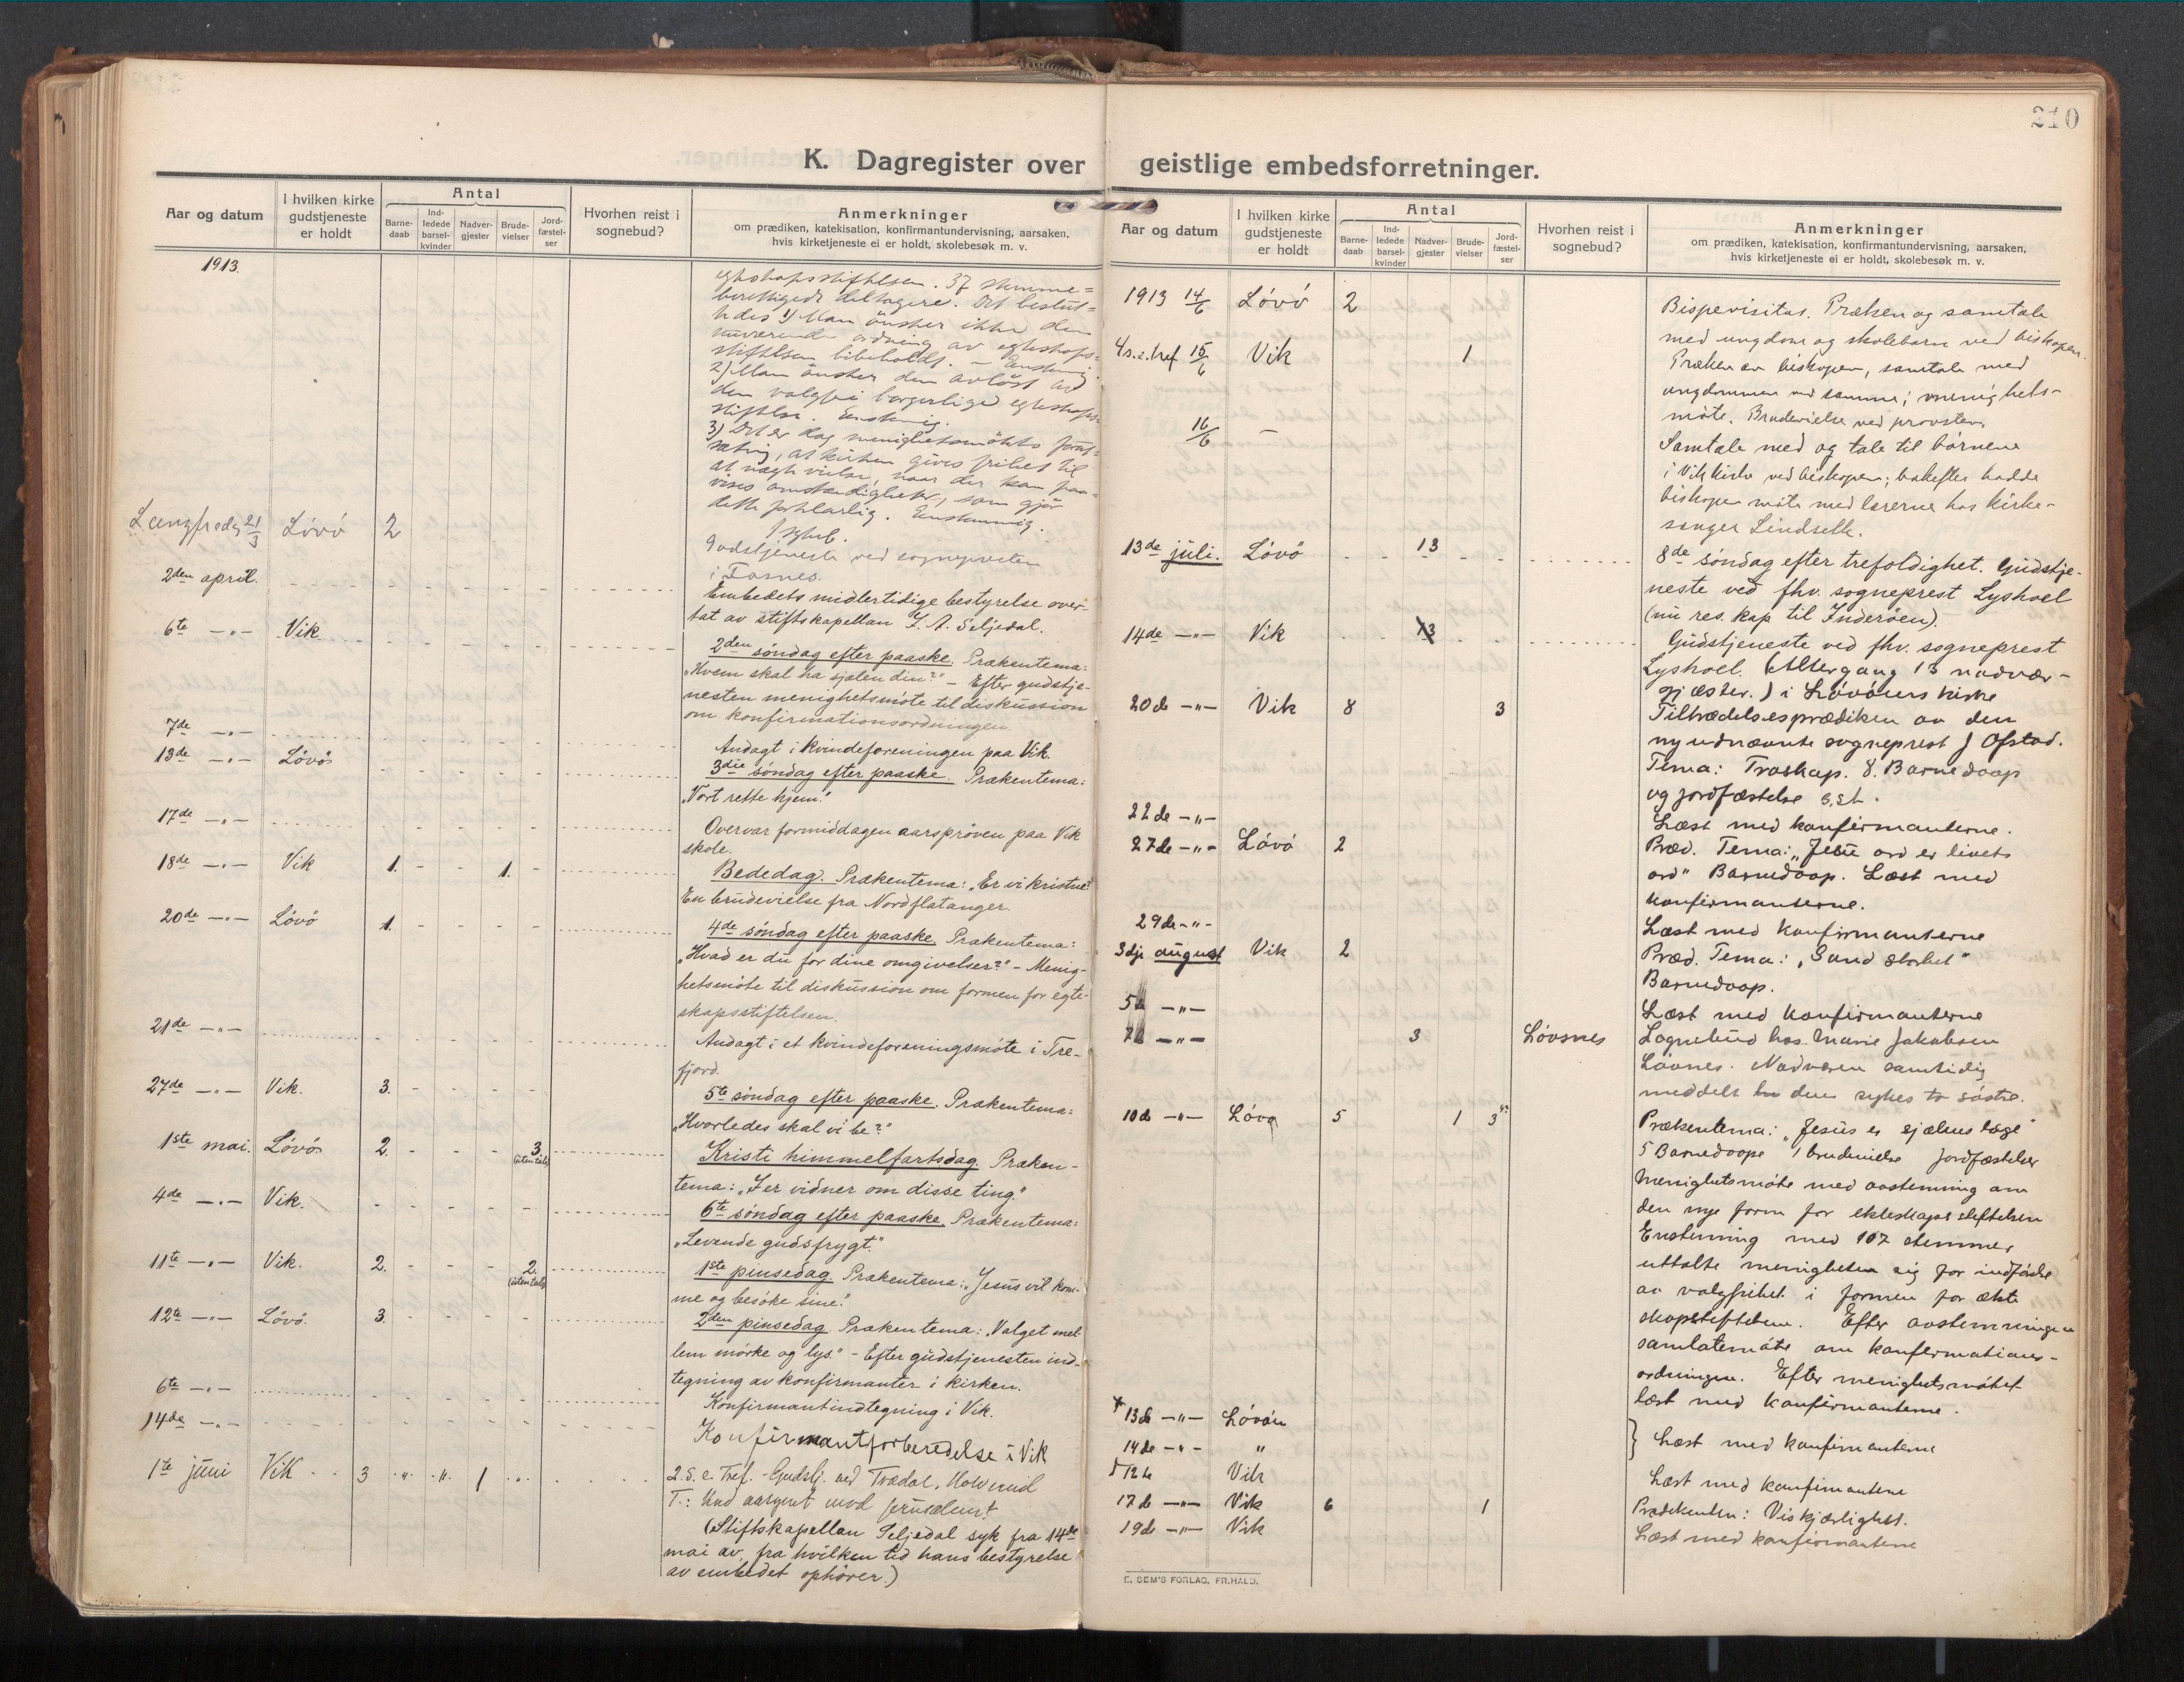 210
K. Dagregister over geistlige embedsforretninger.
Aar og datum
I hvilken kirke gudstjeneste er holdt
Antal
Barne-daab
Ind-ledede barsel-kvinder
Nadver-gjester
Brude-vielser
Jord-fæstel-ser
Hvorhen reist i sognebud?
Anmerkninger
om prædiken, katekisation, konfirmantundervisning, aarsaken,
hvis kirketjeneste ei er holdt, skolebesøk m. v.
1913.
egteskapsstiftelsen. 37 stemme=
berettigede deltagere. Det beslut=
tedes 1) Man ønsker ikke den
nuværende ordning av egteskaps=
stiftelsen bibeholdt. – Enstemmig.
2) Man ønsker den avløst av
den valgfri borgerlige egteskaps=
stiftelse. Enstemmig.
3) Det er dog menighetsmøtets forut=
sætning, at kirken gives frihet til
at negte vielse, naar der kan paa=
vises omstændigheter, som gjør
dette forklarlig. Enstemmig.
Langfredag 21/3 Lövö 2
Gudstjeneste ved sognepresten
i Fosnes.
2den april.
Embedets midlertidige bestyrelse over-
tat av stiftskapellan I. A. Seljedal.
6te –"– Vik.
2den söndag efter paaske. Prækentema:
„Hvem skal ha sjælen din?" – Efter gudstje-
nesten menighetsmöte til diskussion
om konfirmationsordningen.
7de –"–
Andagt i kvindeforeningen paa Vik.
13de –"– Lövö
3die söndag efter paaske. Prækentema:
„Vort rette hjem."
17de –"–
Overvar formiddagen aarsprøven paa Vik
skole.
18de –"– Vik 1. 1.
Bededag. Prækentema: „Er vi kristne?"
En brudevielse fra Nordflatanger.
20de –"– Lövö 1.
4de söndag efter paaske. Prækentema:
„Hvad er du for dine omgivelser?" – Menig-
hetsmöte til diskussion om formen for egte-
skapsstiftelsen.
21de –"–
Andagt i et kvindeforeningsmöte i Tre-
fjord.
27de –"– Vik. 3.
5te söndag efter paaske. Prækentema:
„Hvorledes skal vi be?"
1ste mai. Lövö 2. 3. (uten tale)
Kristi himmelfartsdag. Præken-
tema: „I er vidner om disse ting."
4de –"– Vik.
6te söndag efter paaske. Prækentema:
„Levende gudsfrygt."
11te –"– Vik. 2. 2. (uten tale)
1ste pinsedag. Prækentema: „Jesus vil kom-
me og besöke sine."
12te –"– Lövö. 3.
2den pinsedag. Prækentema: „Valget mel-
lem mörke og lys." – Efter gudstjenesten ind-
tegning av konfirmanter i kirken.
6te –"–
Konfirmantindtegning i Vik.
14de –"–
Konfirmantforberedelse i Vik
1te juni Vik 3 " " 1
2. S. e. Tref. – Gudstj. ved Trædal,
T.: Und aarsynet mod Jerusalem?
(Stiftskapellan Seljedal syk fra 14de
mai av, fra hvilken tid hans bestyrelse
av embedet ophører.)
Aar og datum
I hvilken kirke gudstjeneste er holdt
Antal
Barne-daab
Ind-ledede barsel-kvinder
Nadver-gjester
Brude-vielser
Jord-fæstel-ser
Hvorhen reist i sognebud?
Anmerkninger
om prædiken, katekisation, konfirmantundervisning, aarsaken,
hvis kirketjeneste ei er holdt, skolebesøk m. v.
1913 14/6 Lövö 2
Bispevisitas. Præken og samtale
med ungdom og skolebarn ved biskopen.
4 s. e. tref 15/6 Vik 1
Præken av biskopen, samtale med
ungdommen ved samme; menighets-
möte. Brudevielse ved provsten.
16/6 –
Samtale med og tale til börnene
i Vik kirke ved biskopen; bakefter hadde
biskopen möte med lærerne hos kirke-
sanger Lindseth.
13de juli. Lövö 13
8de söndag efter trefoldighet. Gudstje-
neste ved fhv. sogneprest Lyshoel
(nu res. kap til Inderöen).
14de –"– Vik 13
Gudstjeneste ved fhv. sogneprest
Lyshoel. (Altergang 13 nadver-
gjæster.) i Lövöens kirke
20de –"– Vik 8 3
Tiltrædelsesprædiken av den
nyudnævnte sogneprest J Ofstad.
Tema: Troskap. 8. Barnedaap
og jordfæstelse 3, st.
22de –"–
Læst med konfirmanterne.
27de –"– Lövö 2
Præd. Tema: „Jesu ord er livets
ord" Barnedaap. Læst med
konfirmanterne.
29de –"–
Læst med konfirmanterne
3dje august Vik 2
Præd. Tema: „Sand storhet"
Barnedaap.
5te –"–
Læst med konfirmanterne
7de –"– 3 Lövsnes
Sognebud hos Marie Jakobsen
Lövnes. Nadveren samtidig
meddelt to den sykes to söstre.
10de –"– Lövö 5 1 3
Prækentema: „Jesus er sjælens læge"
5 Barnedaape 1 brudevielse jordfæstelser
Menighetsmöte med avstemning om
den nye form for ekteskaps stiftelsen
Enstemmig med 107 stemmer
uttalte menigheten sig for indförelse
av valgfrihet i formen for ekte
skapsstiftelsen. Efter avstemningen
samtalemöte om konfirmations-
ordningen. Efter menighetsmötet
læst med konfirmanterne.
13de –"– Lövöen
14de –"– "
} Læst med konfirmanterne
12te Vik
Læst med konfirmantene
17de –"– Vik 6 1
Prædikentem: Vis kjærlighet.
19de –"– Vik
Læst med konfirmantene
E. SEM'S FORLAG, FR.HALD.